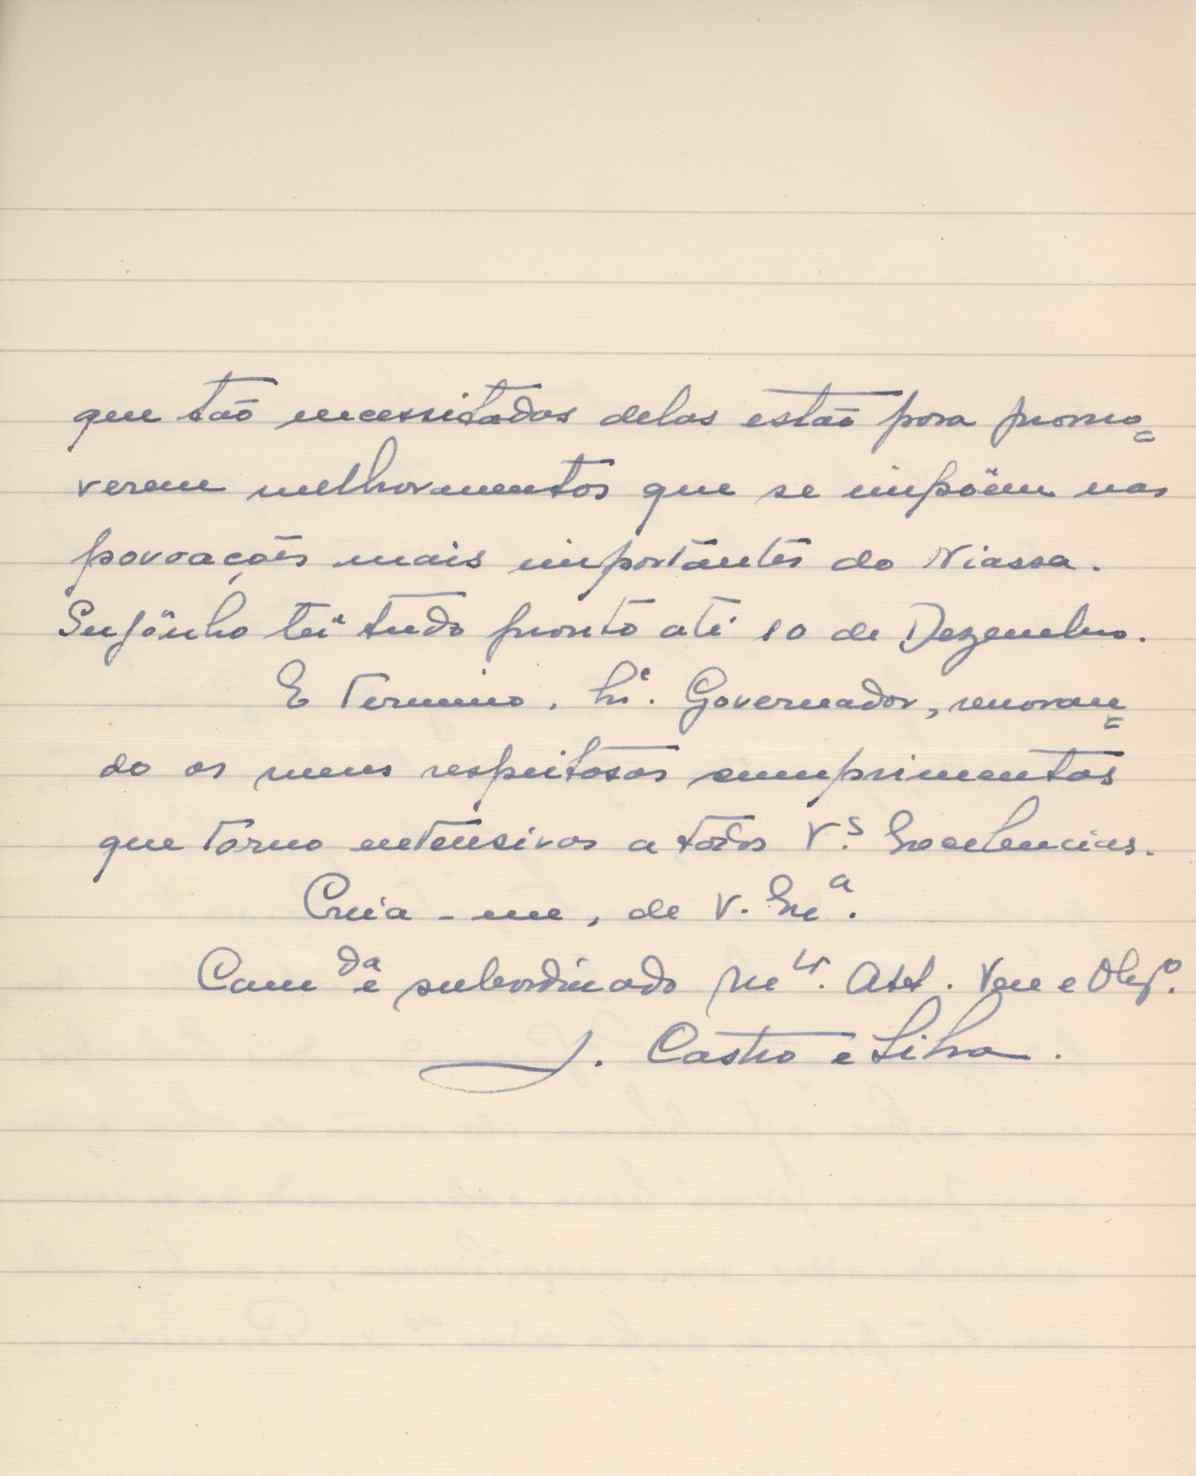 que tão necessitadas delas estão para promo=
verem melhoramentos que se impõem nas
povoações mais importantes do Niassa.
Supônho ter tudo pronto até 10 de Dezembro.
E termino, Sr. Governador, renovan=
do os meus respeitosos cumprimentos
que torno extensivos a todos V.s Excelencias.
Creia-me, de V. Exa.
Camda e subordinado Mto. Att. Ven e Obgo.
J. Castro e Silva.